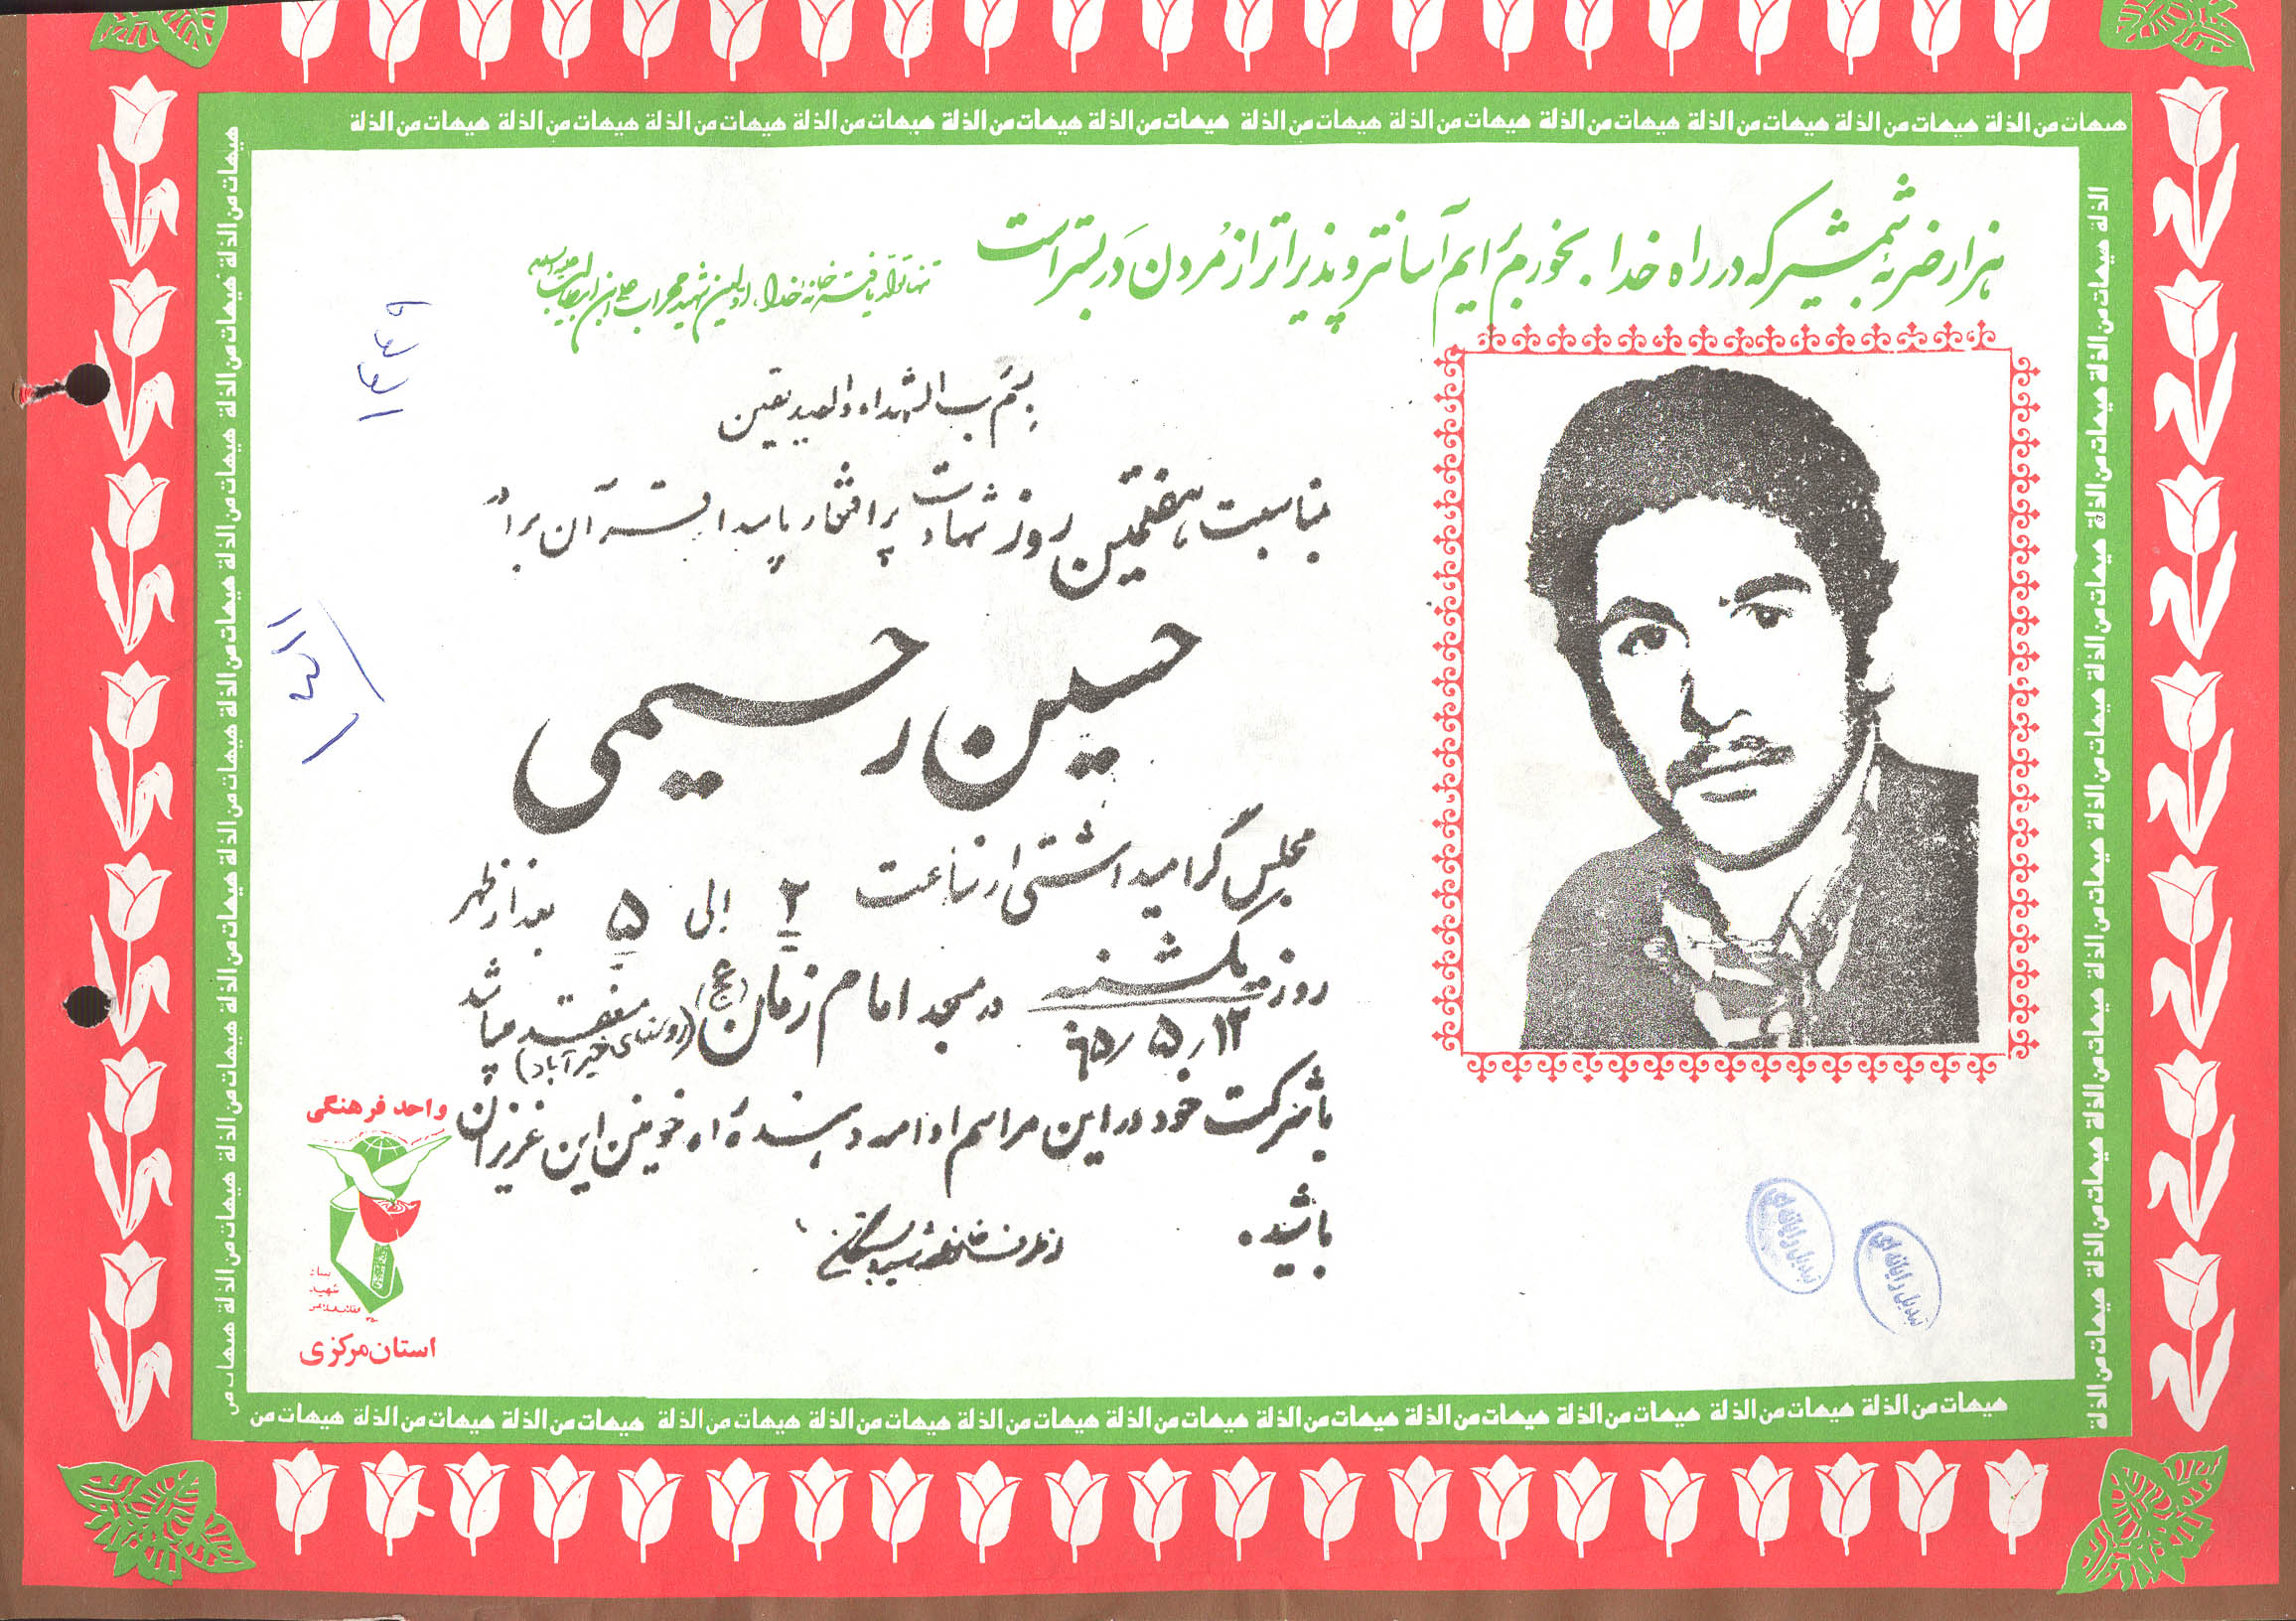 هیهات من الذلة هیهات من الذلة هیهات من الذلة هیهات من الذلة هیهات من الذلة هیهات من الذلة هیهات من الذلة هیهات من الذلة هیهات من الذلة هیهات من الذلة هیهات من الذلة هیهات من الذلة
هزار ضربهٔ شمشیر که در راه خدا بخورم برایم آسانتر و پذیراتر از مُردن در بستر است
تنها تولد یافته خانه خدا، اولین شهید محراب علی ابن ابیطالب علیه‌السلام
بسم رب الشهداء والصدیقین
بمناسبت هفتمین روز شهادت پر افتخار پاسدار قرآن برادر
حسین رحیمی
مجلس گرامیداشتی از ساعت ۲ الی ۵ بعد از ظهر
روز یکشنبه ۶۵/۵/۱۲ در مسجد امام زمان (عج) (روستای خیرآباد) منعقد میباشد
با شرکت خود در این مراسم ادامه دهندهٔ راه خونین این عزیزان
باشید.
از طرف
واحد فرهنگی
بنیاد
شهید
استان مرکزی
تبدیل رایانه ای
تبدیل رایانه ای
هیهات من الذلة هیهات من الذلة هیهات من الذلة هیهات من الذلة هیهات من الذلة هیهات من الذلة هیهات من الذلة هیهات من الذلة هیهات من الذلة هیهات من الذلة هیهات من الذلة هیهات من